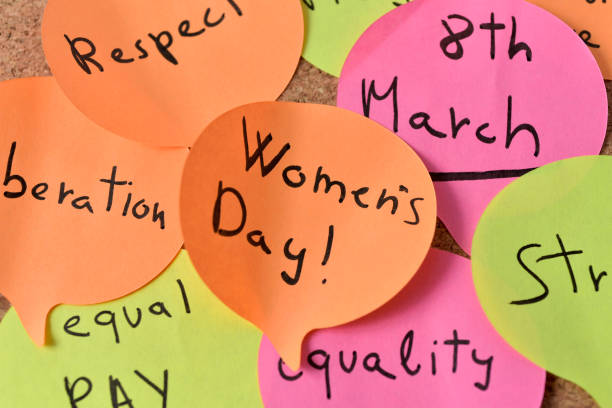 Respect
8th
March
beration
Women's
Day!
Str
equal
PAY
equality